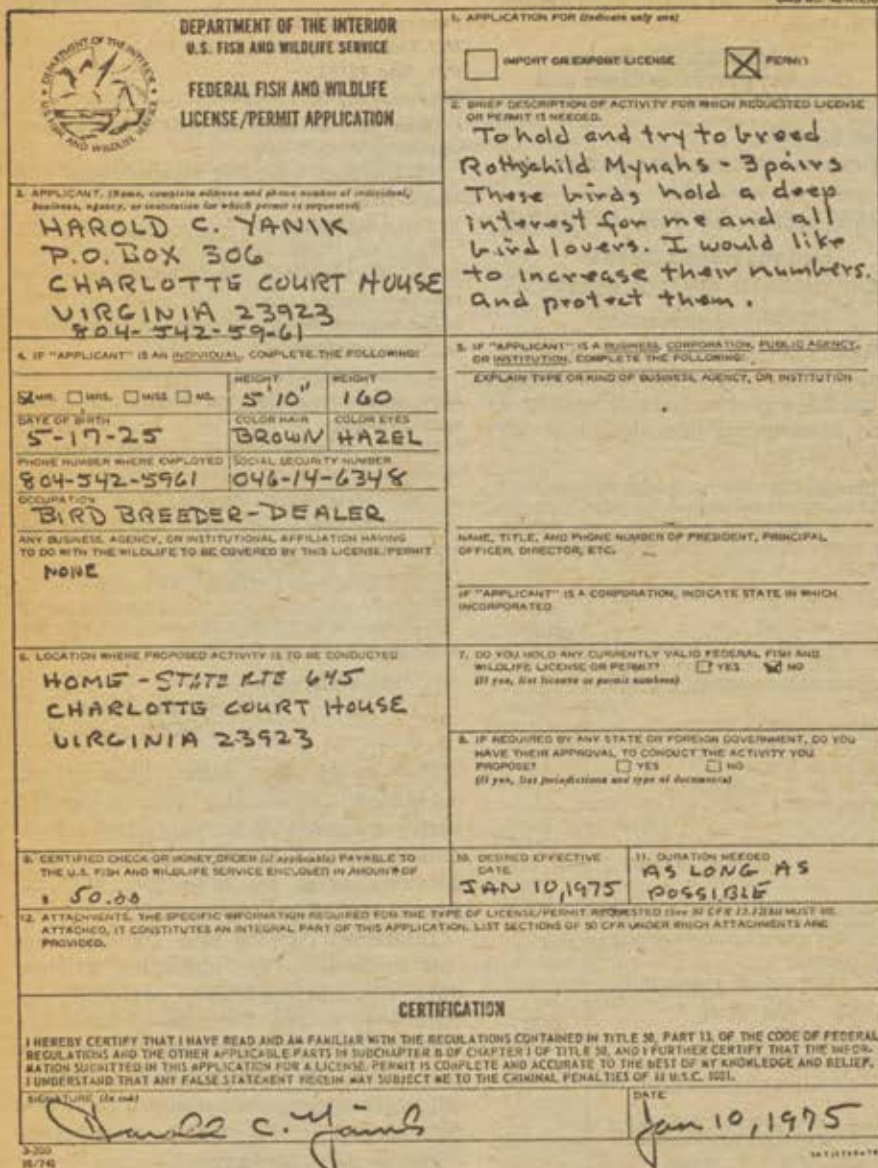 DEPARTMENT OF THE INTERIOR
U.S. FISH AND WILDLIFE SERVICE
FEDERAL FISH AND WILDLIFE
LICENSE/PERMIT APPLICATION
DEPARTMENT OF THE INTERIOR
U.S. FISH AND WILDLIFE SERVICE
1. APPLICATION FOR (Indicate only one)
IMPORT OR EXPORT LICENSE
PERMIT
2. BRIEF DESCRIPTION OF ACTIVITY FOR WHICH REQUESTED LICENSE
OR PERMIT IS NEEDED.
To hold and try to breed
Rothschild Mynahs - 3 pairs
These birds hold a deep
interest for me and all
bird lovers. I would like
to increase their numbers.
and protect them.
3. APPLICANT. (Name, complete address and phone number of individual,
business, agency, or institution for which permit is requested)
HAROLD C. YANIK
P.O. BOX 306
CHARLOTTE COURT HOUSE
VIRGINIA 23923
804-542-59-61
4. IF "APPLICANT" IS AN INDIVIDUAL, COMPLETE THE FOLLOWING:
MR. MRS. MISS MS.
HEIGHT
5'10"
WEIGHT
160
DATE OF BIRTH
5-17-25
COLOR HAIR
BROWN
COLOR EYES
HAZEL
PHONE NUMBER WHERE EMPLOYED
804-542-5961
SOCIAL SECURITY NUMBER
046-14-6348
OCCUPATION
BIRD BREEDER-DEALER
ANY BUSINESS, AGENCY, OR INSTITUTIONAL AFFILIATION HAVING
TO DO WITH THE WILDLIFE TO BE COVERED BY THIS LICENSE/PERMIT
NONE
5. IF "APPLICANT" IS A BUSINESS, CORPORATION, PUBLIC AGENCY,
OR INSTITUTION, COMPLETE THE FOLLOWING:
EXPLAIN TYPE OR KIND OF BUSINESS, AGENCY, OR INSTITUTION
NAME, TITLE, AND PHONE NUMBER OF PRESIDENT, PRINCIPAL
OFFICER, DIRECTOR, ETC.
IF "APPLICANT" IS A CORPORATION, INDICATE STATE IN WHICH
INCORPORATED
6. LOCATION WHERE PROPOSED ACTIVITY IS TO BE CONDUCTED
HOME - STATE RTE 645
CHARLOTTE COURT HOUSE
VIRGINIA 23923
7. DO YOU HOLD ANY CURRENTLY VALID FEDERAL FISH AND
WILDLIFE LICENSE OR PERMIT? YES NO
(If yes, list license or permit numbers)
8. IF REQUIRED BY ANY STATE OR FOREIGN GOVERNMENT, DO YOU
HAVE THEIR APPROVAL TO CONDUCT THE ACTIVITY YOU
PROPOSE? YES NO
(If yes, list jurisdictions and type of documents)
9. CERTIFIED CHECK OR MONEY ORDER (if applicable) PAYABLE TO
THE U.S. FISH AND WILDLIFE SERVICE ENCLOSED IN AMOUNT OF
$ 50.00
10. DESIRED EFFECTIVE
DATE
JAN 10, 1975
11. DURATION NEEDED
AS LONG AS
POSSIBLE
12. ATTACHMENTS. THE SPECIFIC INFORMATION REQUIRED FOR THE TYPE OF LICENSE/PERMIT REQUESTED (See 50 CFR 13.12(b)) MUST BE
ATTACHED, IT CONSTITUTES AN INTEGRAL PART OF THIS APPLICATION. LIST SECTIONS OF 50 CFR UNDER WHICH ATTACHMENTS ARE
PROVIDED.
CERTIFICATION
I HEREBY CERTIFY THAT I HAVE READ AND AM FAMILIAR WITH THE REGULATIONS CONTAINED IN TITLE 50, PART 13, OF THE CODE OF FEDERAL
REGULATIONS AND THE OTHER APPLICABLE PARTS IN SUBCHAPTER B OF CHAPTER I OF TITLE 50, AND I FURTHER CERTIFY THAT THE INFOR-
MATION SUBMITTED IN THIS APPLICATION FOR A LICENSE/PERMIT IS COMPLETE AND ACCURATE TO THE BEST OF MY KNOWLEDGE AND BELIEF.
I UNDERSTAND THAT ANY FALSE STATEMENT HEREIN MAY SUBJECT ME TO THE CRIMINAL PENALTIES OF 18 U.S.C. 1001.
SIGNATURE (In ink)
Harold C. Yanik
DATE
Jan 10, 1975
3-200